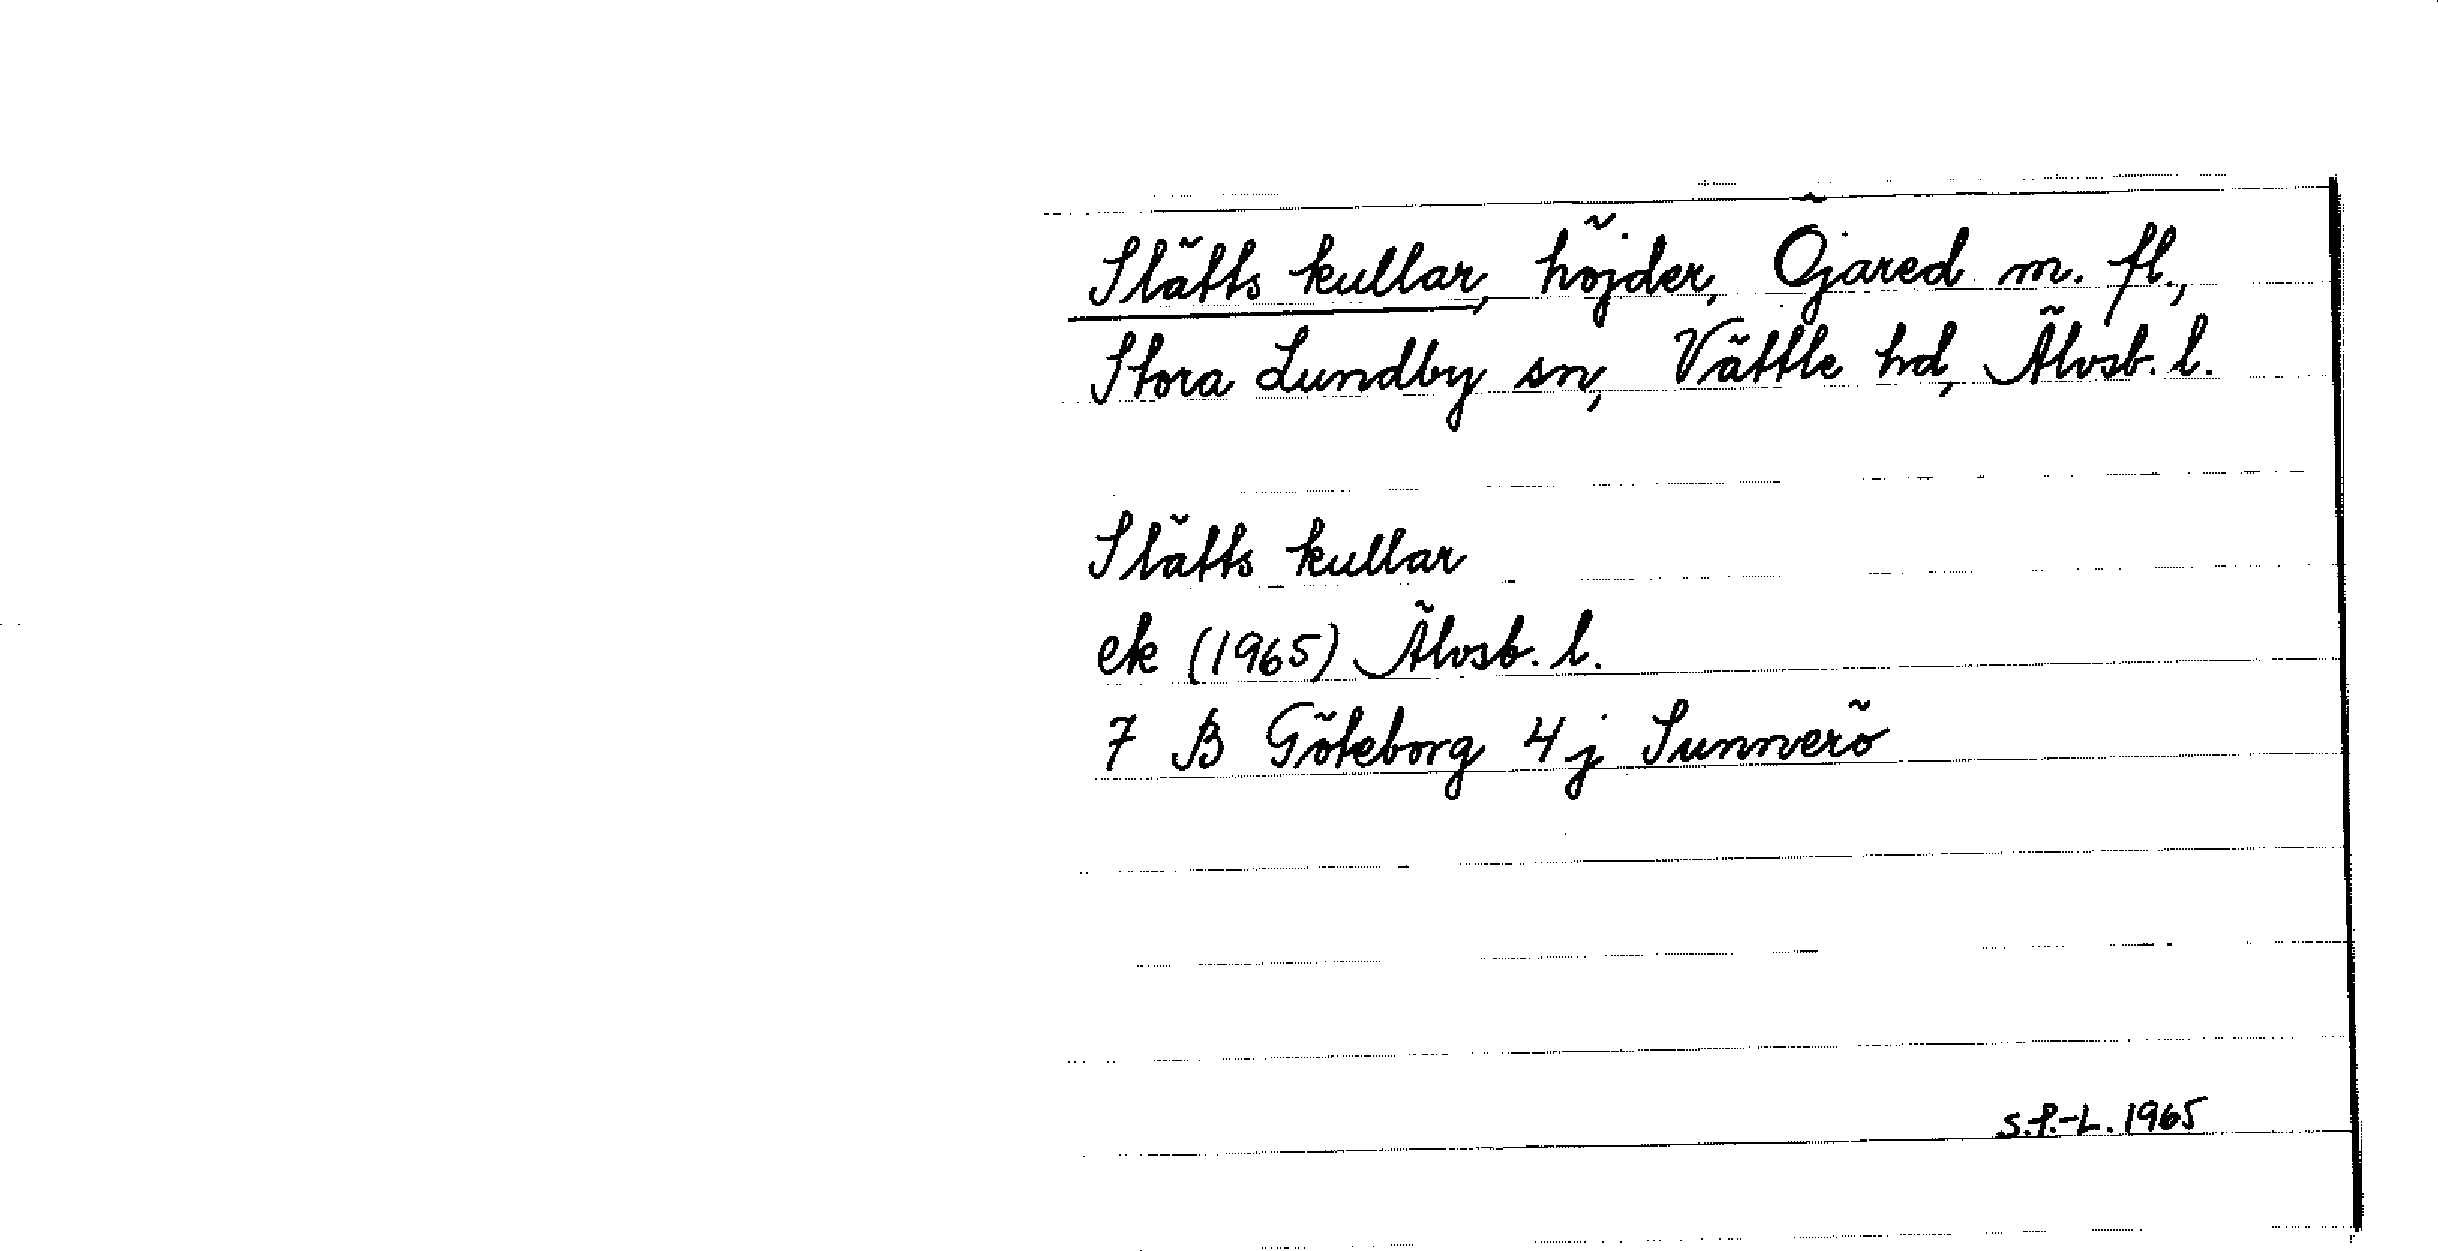 Slätts kullar, höjder, Öjared m. fl.,
Stora Lundby sn, Vättle hd, Älvsb. l.
Slätts kullar
ek (1965) Älvsb. l.
7 B Göteborg 4 j Sunnerö
S.P.-L. 1965